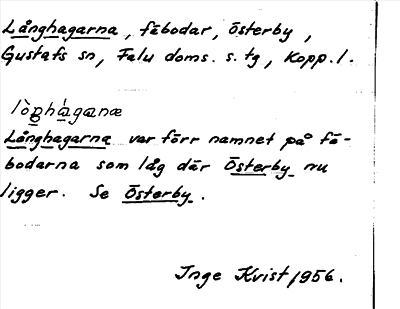 Långhagarna, fäbodar, Österby,
Gustafs sn, Falu doms. s. tg, Kopp. l.
Långhagarna var förr namnet på fä-
bodarna som låg där Österby nu
ligger. Se Österby.
Inge Kvist 1956.